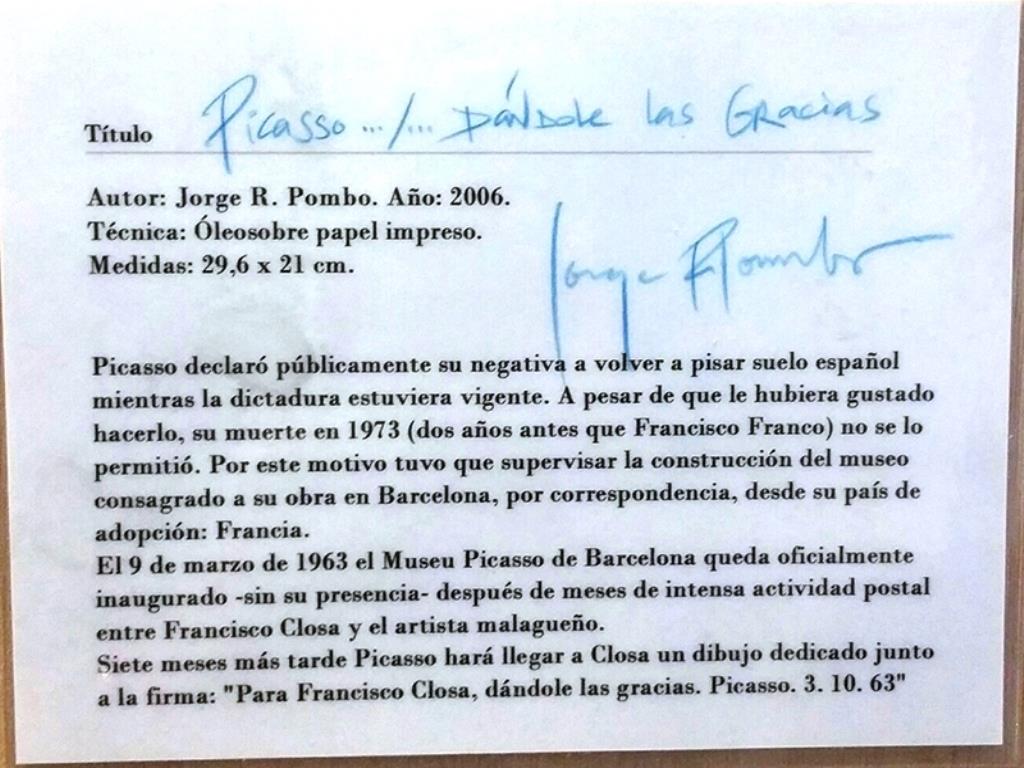 Título Picasso .../... Dándole las Gracias
Autor: Jorge R. Pombo. Año: 2006.
Técnica: Óleosobre papel impreso.
Medidas: 29,6 x 21 cm.
Jorge R Pombo
Picasso declaró públicamente su negativa a volver a pisar suelo español
mientras la dictadura estuviera vigente. A pesar de que le hubiera gustado
hacerlo, su muerte en 1973 (dos años antes que Francisco Franco) no se lo
permitió. Por este motivo tuvo que supervisar la construcción del museo
consagrado a su obra en Barcelona, por correspondencia, desde su país de
adopción: Francia.
El 9 de marzo de 1963 el Museu Picasso de Barcelona queda oficialmente
inaugurado -sin su presencia- después de meses de intensa actividad postal
entre Francisco Closa y el artista malagueño.
Siete meses más tarde Picasso hará llegar a Closa un dibujo dedicado junto
a la firma: "Para Francisco Closa, dándole las gracias. Picasso. 3. 10. 63"